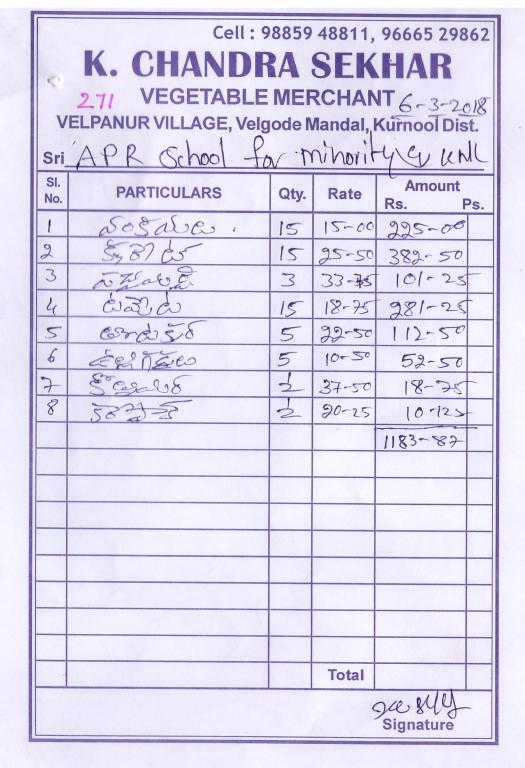 Cell : 98859 48811, 96665 29862
K. CHANDRA SEKHAR
271 VEGETABLE MERCHANT 6-3-2018
VELPANUR VILLAGE, Velgode Mandal, Kurnool Dist.
Sri APR School for minority KNL
Sl. No. PARTICULARS Qty. Rate Amount Rs. Ps.
1 వంకాయలు 15 15-00 225-00
2 క్యారెట్ 15 25-50 382-50
3 3 33-75 101-25
4 టమోట 15 18-75 281-25
5 5 22-50 112-50
6 ఉల్లిగడ్డలు 5 10-50 52-50
7 ½ 37-50 18-75
8 ½ 20-25 10-125
1183-87
Total
Signature